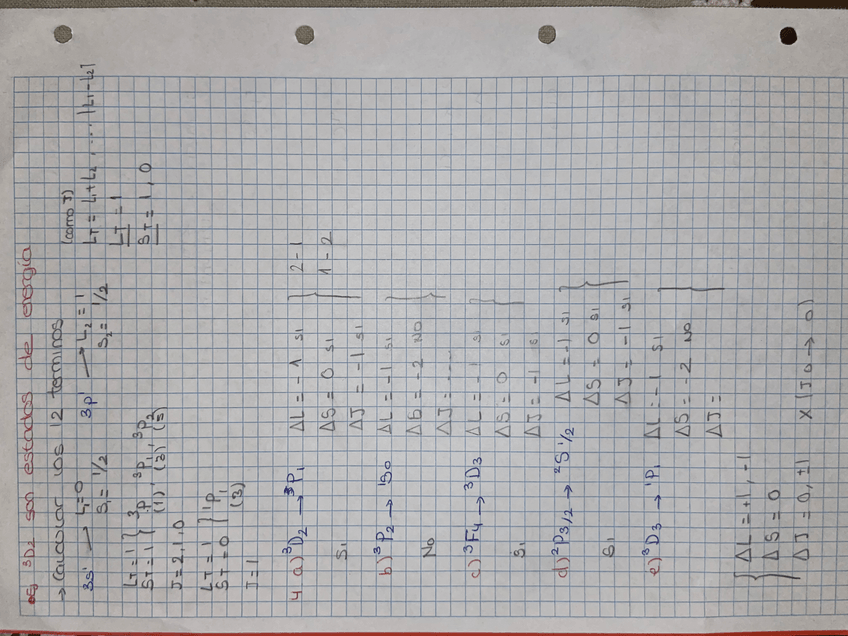 ej ³D2 son estados de energía
→ Calcular los 12 terminos
3s¹ → L1=0 3p¹ → L2 = 1 (como J)
S1 = 1/2 S2 = 1/2 LT = L1+L2, ... |L1-L2|
LT = 1
ST = 1, 0
LT = 1 } ³P0 ³P1 ³P2
ST = 1 } (1) (3) (5)
J = 2,1,0
LT = 1 } ¹P1
ST = 0 } (3)
J = 1
4 a) ³D2 → ³P1 ΔL = -1 SI 2-1
SI ΔS = 0 SI 1-2
ΔJ = -1 SI
b) ³P2 → ¹S0 ΔL = -1 SI
No ΔS = -2 NO
ΔJ = ----
c) ³F4 → ³D3 ΔL = -1 SI
SI ΔS = 0 SI
ΔJ = -1 SI
d) ²P3/2 → ²S1/2 ΔL = -1 SI
SI ΔS = 0 SI
ΔJ = -1 SI
e) ³D3 → ¹P1 ΔL = -1 SI
ΔS = -2 NO
ΔJ =
ΔL = +1, -1
ΔS = 0
ΔJ = 0, ±1 X (J0 → 0)